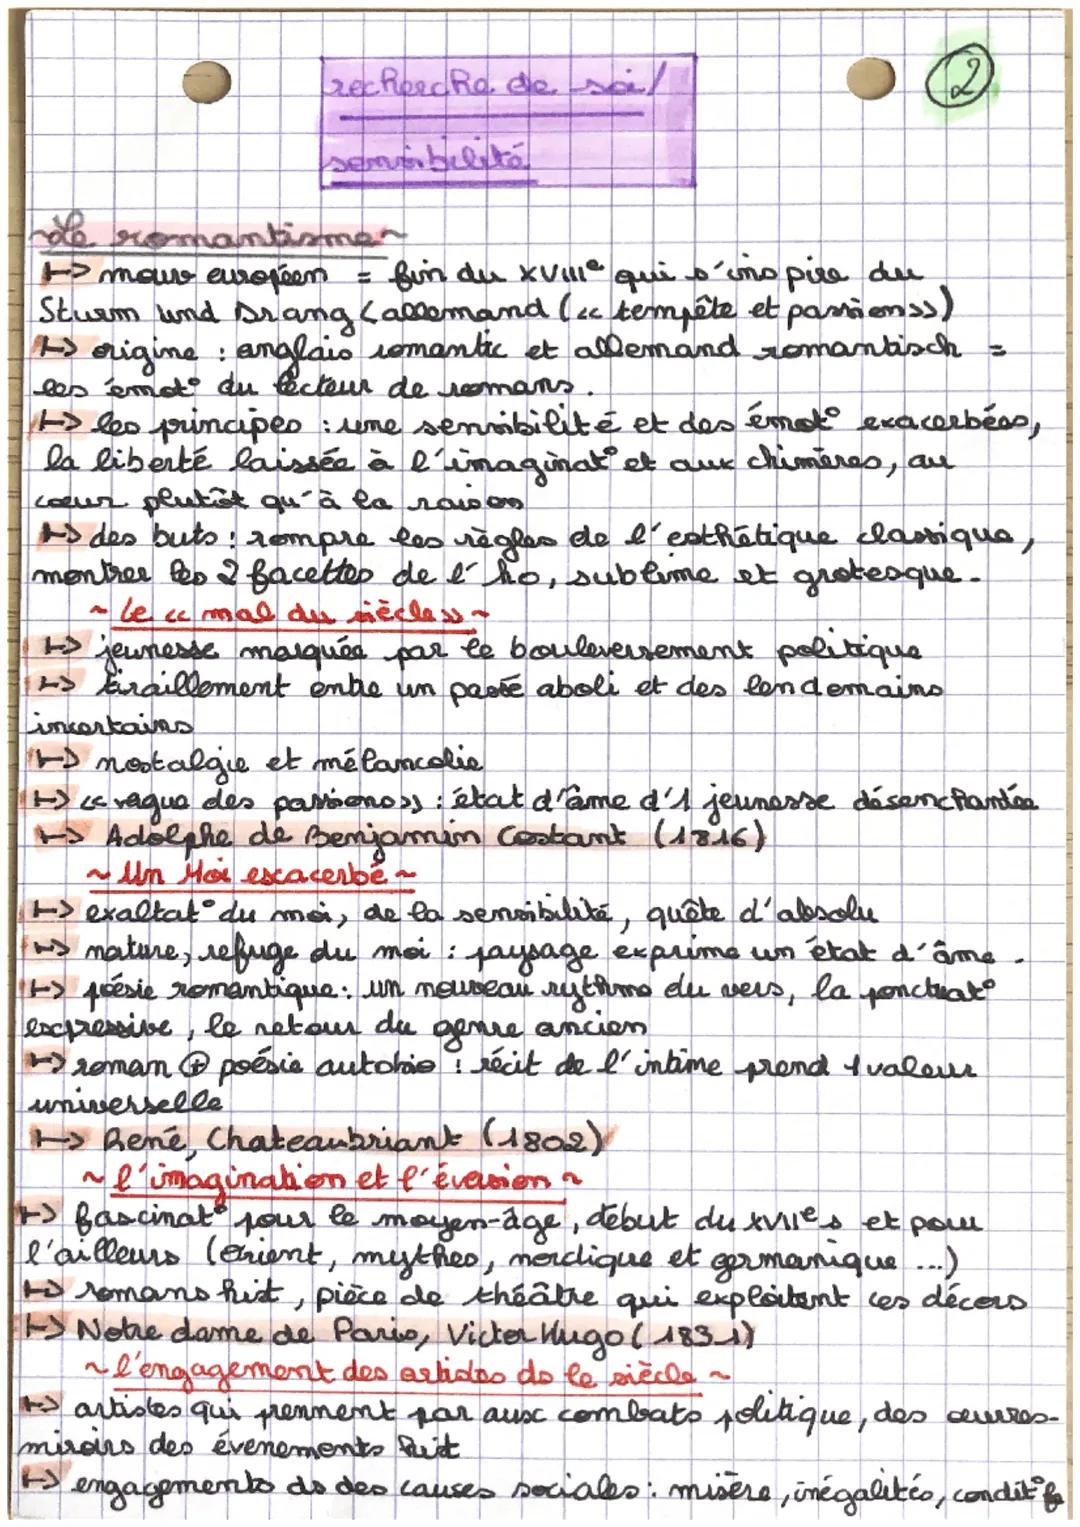 2
recherche de soi/
sensibilité
~Le romantisme~
↦ mouv européen = fin du XVIIIe qui s'inspire du
Sturm und Drang (allemand (<< tempête et passion>>)
↦ origine : anglais romantic et allemand romantisch =
les émot° du lecteur de romans.
↦ les principes : une sensibilité et des émot° exacerbées,
la liberté laissée à l'imaginat° et aux chimères, au
coeur plutôt qu'à la raison
↦ des buts : rompre les règles de l'esthétique classique,
montrer les 2 facettes de l'ho, sublime et grotesque.
~ Le << mal du siècle>> ~
↦ jeunesse marquée par le bouleversement politique
↦ tiraillement entre un passé aboli et des lendemains
incertains
↦ nostalgie et mélancolie
↦ << vague des passions>> : état d'âme d'1 jeunesse désenchantée
↦ Adolphe de Benjamin Costant (1816)
~ Un Moi escacerbé ~
↦ exaltat° du moi, de la sensibilité, quête d'absolu
↦ nature, refuge du moi : paysage exprime un état d'âme.
↦ poésie romantique : un nouveau rythme du vers, la ponctuat°
expressive, le retour du genre ancien
↦ roman ⊕ poésie autobio : récit de l'intime prend 1 valeur
universelle
↦ René, Chateaubriant (1802)
~ l'imagination et l'évasion ~
↦ fascinat° pour le moyen-âge, début du XVIIe s et pour
l'ailleurs (Orient, mythes, nordique et germanique ...)
↦ romans hist, pièce de théâtre qui exploitent ces décors
↦ Notre dame de Paris, Victor Hugo (1831)
~ l'engagement des artistes ds le siècle ~
↦ artistes qui prennent par aux combats politique, des oeuvres-
miroirs des évenements hist
↦ engagements ds des causes sociales : misère, inégalités, condit° fe